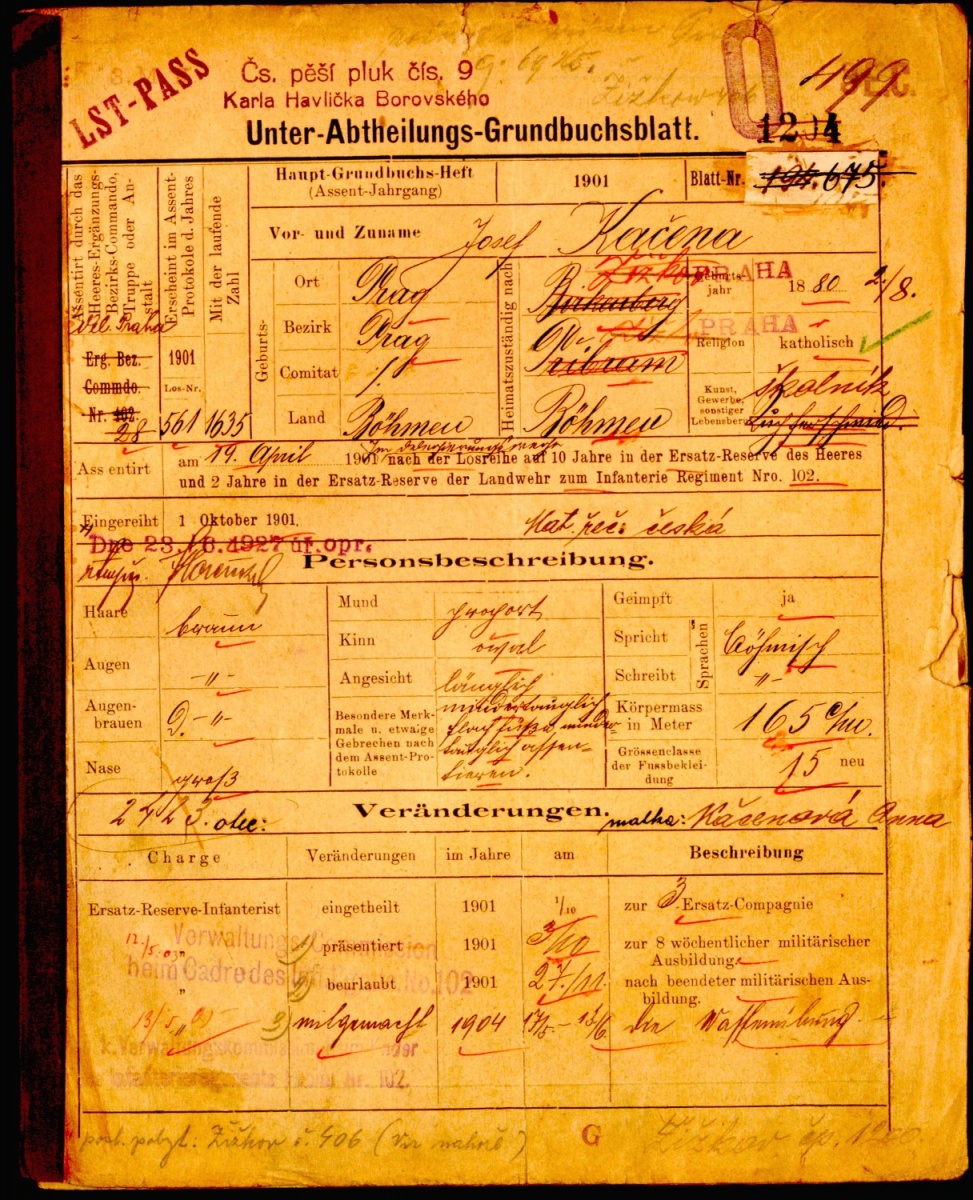 LST-PASS
Čs. pěší pluk čís. 9
Karla Havlíčka Borovského
499
Unter-Abtheilungs-Grundbuchsblatt.
1204
Assentirt durch das Heeres-Ergänzungs-Bezirks-Commando, Truppe oder Anstalt
Erscheint im Assent-Protokole d. Jahres
Mit der laufende Zahl
Haupt-Grundbuchs-Heft
(Assent-Jahrgang)
1901
Blatt-Nr.
194. 675.
Vor- und Zuname
Josef Kačena
Geburts-
Ort
Prag
Bezirk
Prag
Comitat
Land
Böhmen
Heimatszuständig nach
Žižkov PRAHA
PRAHA
Přibram
Böhmen
Geburts-
jahr
1880 2/8.
Religion
katholisch
Kunst,
Gewerbe,
sonstiger
Lebensberuf
školník
Praha
Erg. Bez.
Commdo.
Nr. 102.
28
1901
Los-Nr.
561
1635
Assentirt
am 19. April 1901 nach der Losreihe auf 10 Jahre in der Ersatz-Reserve des Heeres
und 2 Jahre in der Ersatz-Reserve der Landwehr zum Infanterie Regiment Nro. 102.
Eingereiht
1 Oktober 1901.
Mat. řeč: česká
Dne 23./6. 1927 úř. opr.
Personsbeschreibung.
Haare
braun
Augen
-"-
Augen-
brauen
-"-
Nase
groß
Mund
proport
Kinn
oval
Angesicht
länglich
Besondere Merk-
male u. etwaige
Gebrechen nach
dem Assent-Pro-
tokolle
mindertauglich
minder
tauglich assen-
tieren.
Geimpft
ja
Spricht
Sprachen
böhmisch
Schreibt
"-
Körpermass
in Meter
165 c/m.
Grössenclasse
der Fussbeklei-
dung
15 neu
otec:
Veränderungen.
matka: Kačenová Anna
Charge
Veränderungen
im Jahre
am
Beschreibung
Ersatz-Reserve-Infanterist
eingetheilt
1901
1/10
zur 3. Ersatz-Compagnie
"
1) präsentiert
1901
3/10
zur 8 wöchentlicher militärischer
Ausbildung.
"
2) beurlaubt
1901
27./11.
nach beendeter militärischen Aus-
bildung.
"
3) mitgemacht
1904
die Waffenübung.
Verwaltungs-Commission
beim Cadre des Inft. Regmts No. 102
Nr. 102.
Žižkov č. 406
G
Žižkov čp.